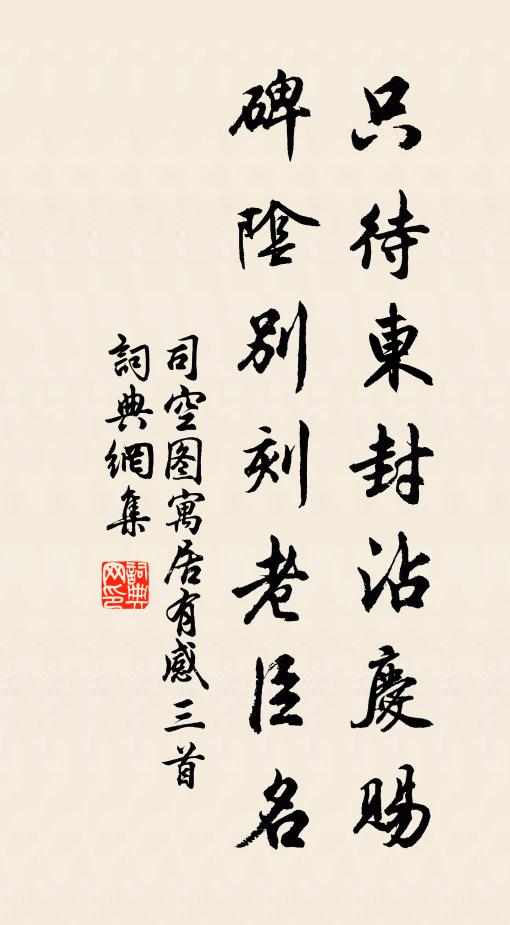 只待東封沾慶賜
碑陰別刻老臣名
司空图寓居有感三首
詞典網集
詞典
网印